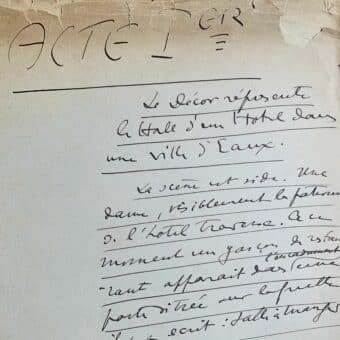 ACTE Ier
Le Décor représente
le Hall d'un Hotel dans
une ville d'Eaux.
La scène est vide. Une
dame, visiblement la patronne
d. l'hotel traverse. Au
moment un garçon de restau
rant apparait dans l'encadrement
porte vitrée sur laquelle
est écrit : Salle à manger